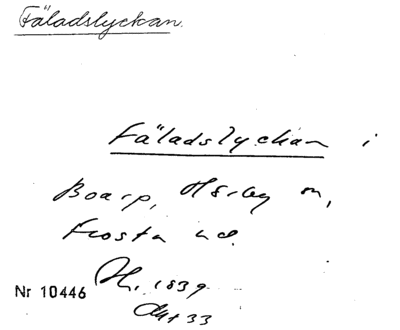 Fäladslyckan.
Fäladslyckan i
Boarp, Hörby sn,
Frosta hd.
1839
Nr 10446
Akt 33